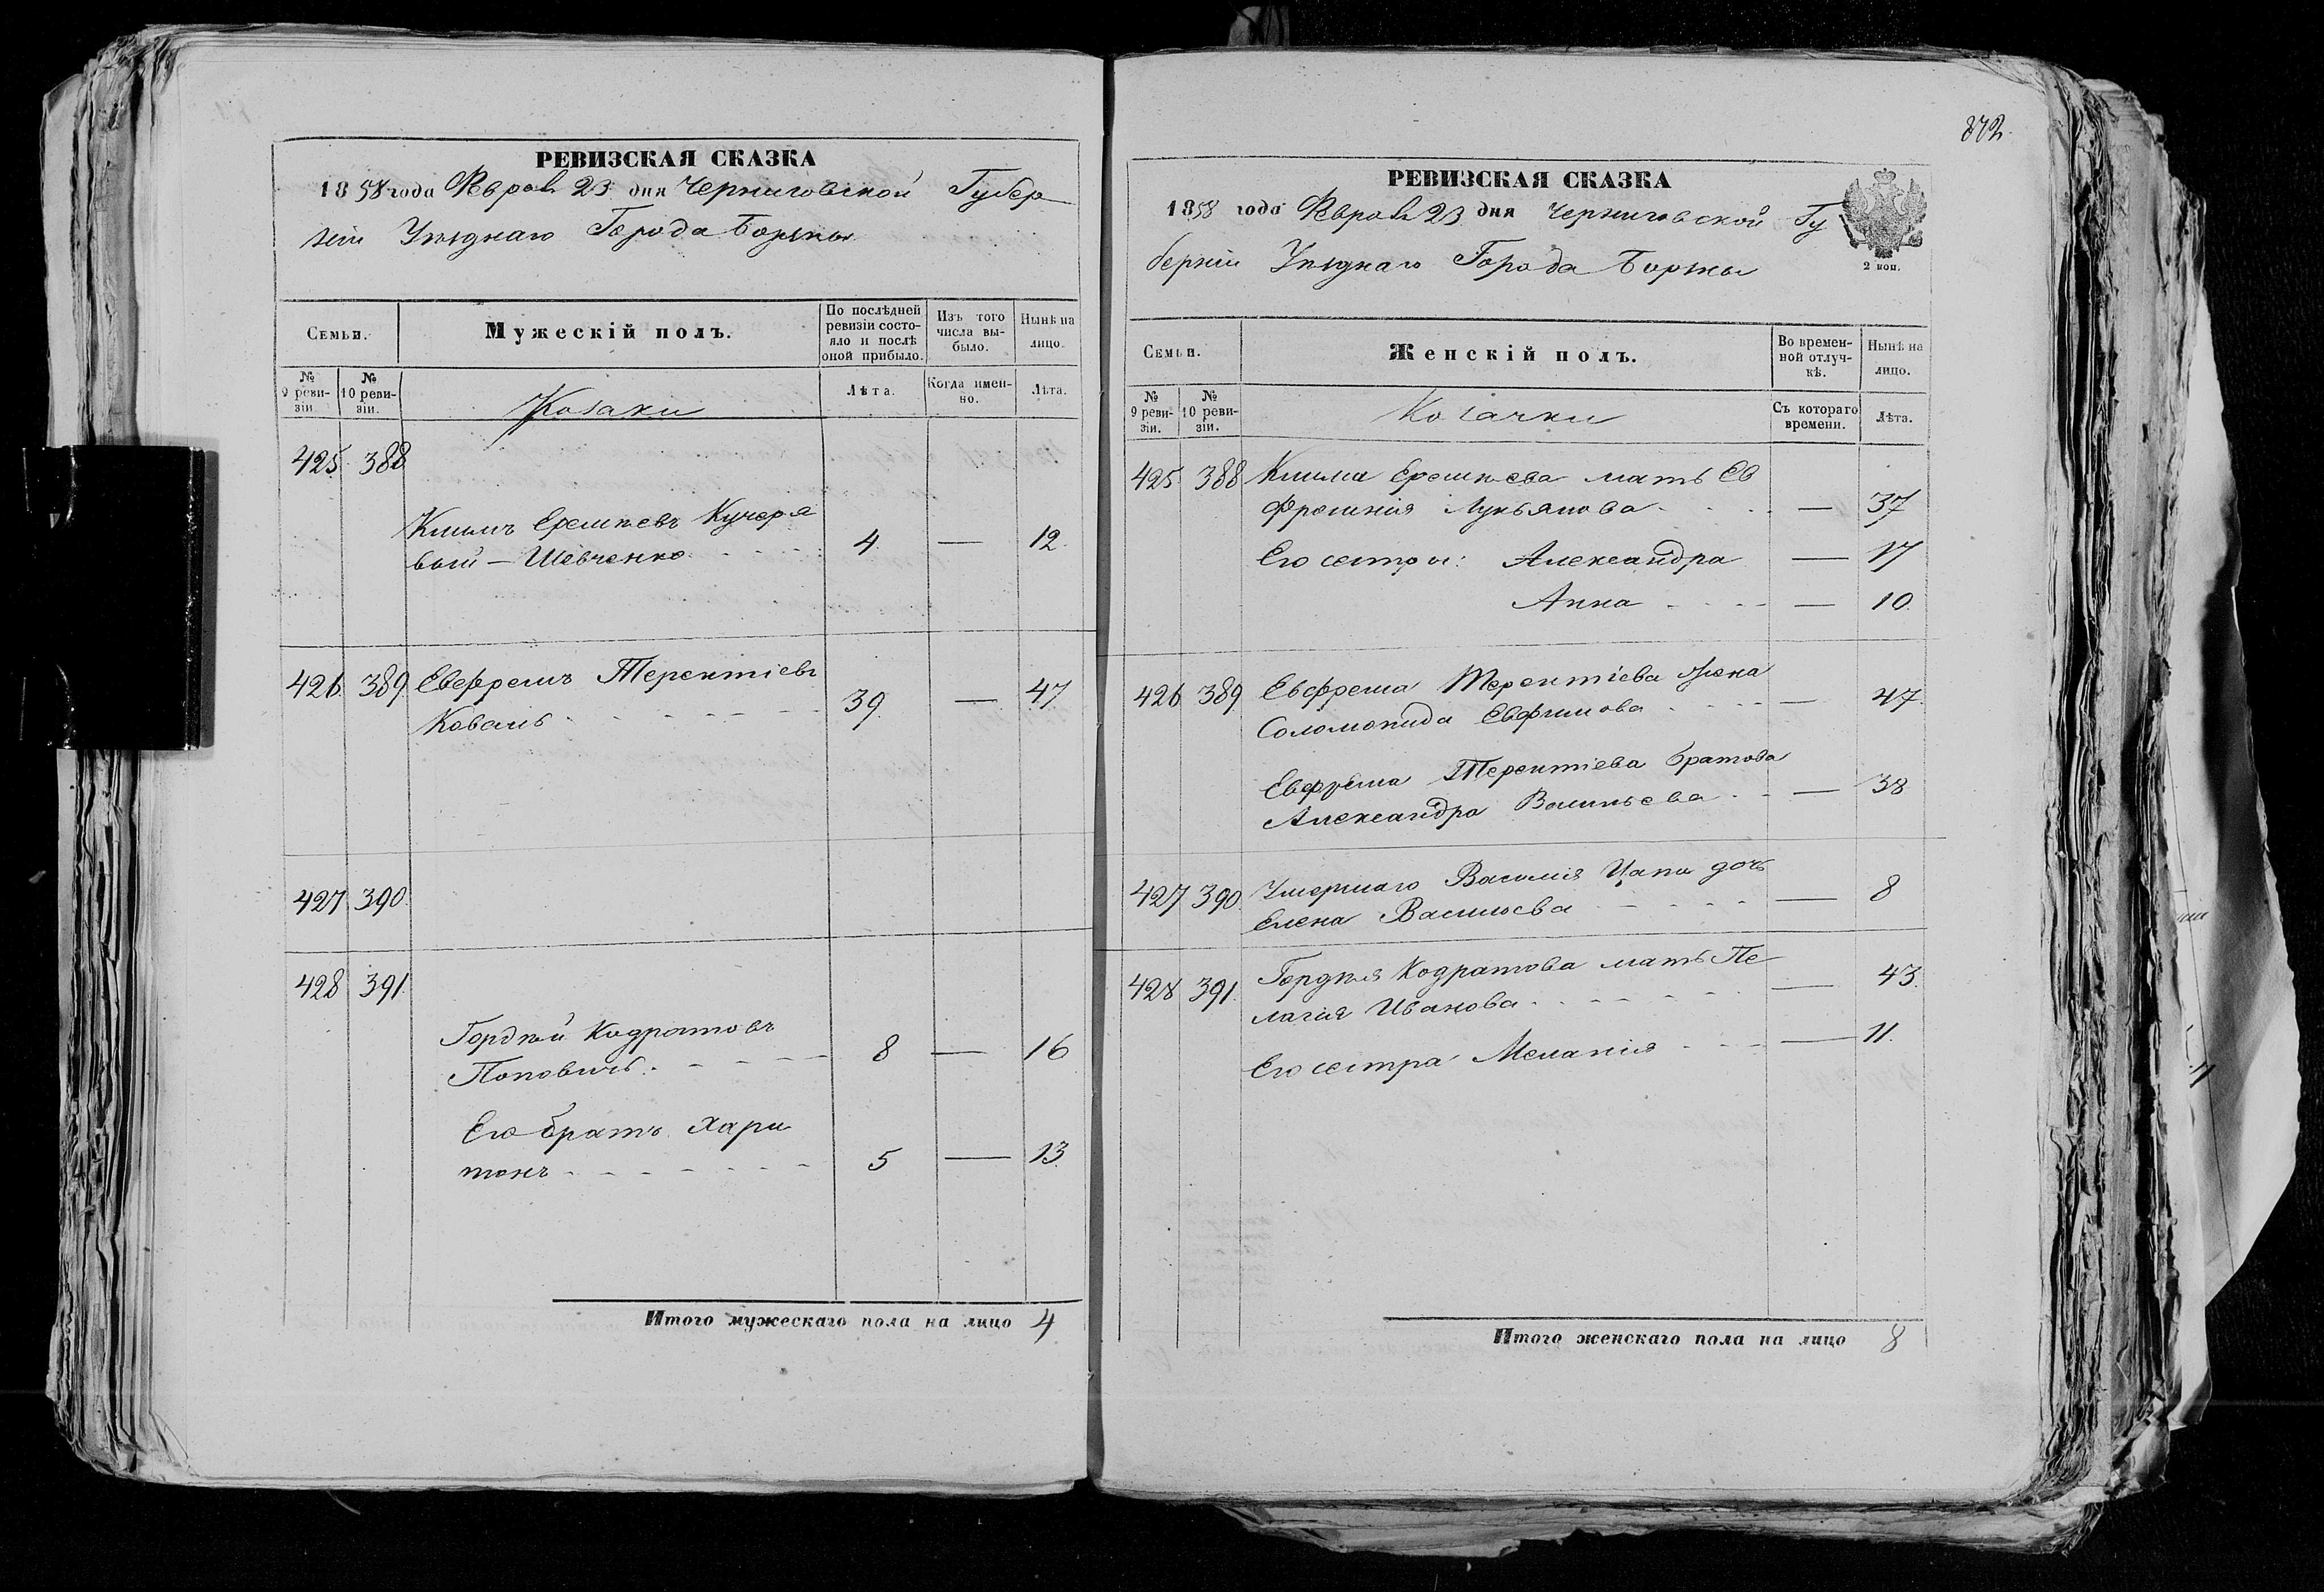 РЕВИЗСКАЯ СКАЗКА
1858 года Феврал 23 дня Черниговской Губер
ніи Уѣзднаго Города Борзны
Семьи.
Мужескій полъ.
По послѣдней ревизіи состояло и послѣ оной прибыло.
Изъ того числа выбыло.
Нынѣ на лицо.
№ 9 ревизіи.
№ 10 ревизіи.
Козаки
Лѣта.
Когда именно.
Лѣта.
425. 388
Климъ Еремѣевъ Кучеря
вый – Шевченко 4 — 12.
426. 389. Евфремъ Терентіевъ
Коваль 39. — 47
427 390.
428 391.
Гордѣй Кодратовъ
Поповичъ 8 — 16
Его братъ Хари
тонъ 5 — 13.
Итого мужескаго пола на лицо 4
872.
РЕВИЗСКАЯ СКАЗКА
1858 года Феврал 23 дня Черниговской Гу
берніи Уѣзднаго Города Борзны
2 коп.
Семьи.
Женскій полъ.
Во временной отлучкѣ.
Нынѣ на лицо.
№ 9 ревизіи.
№ 10 ревизіи.
Козачки
Съ котораго времени.
Лѣта.
425. 388 Клима Еремѣева мать Ев
фросинія Лукьянова — 37
Его сестры: Александра — 17
Анна — 10.
426 389. Евфрема Терентіева жена
Соломонида Евфимова — 47.
Евфрема Терентіева братова
Александра Васильева — 38
427 390. Умершаго Василія Цапа дочь
Елена Васильева — 8
428 391. Гордѣя Кодратова мать Пе
лагия Иванова — 43.
Его сестра Меланія — 11.
Итого женскаго пола на лицо 8